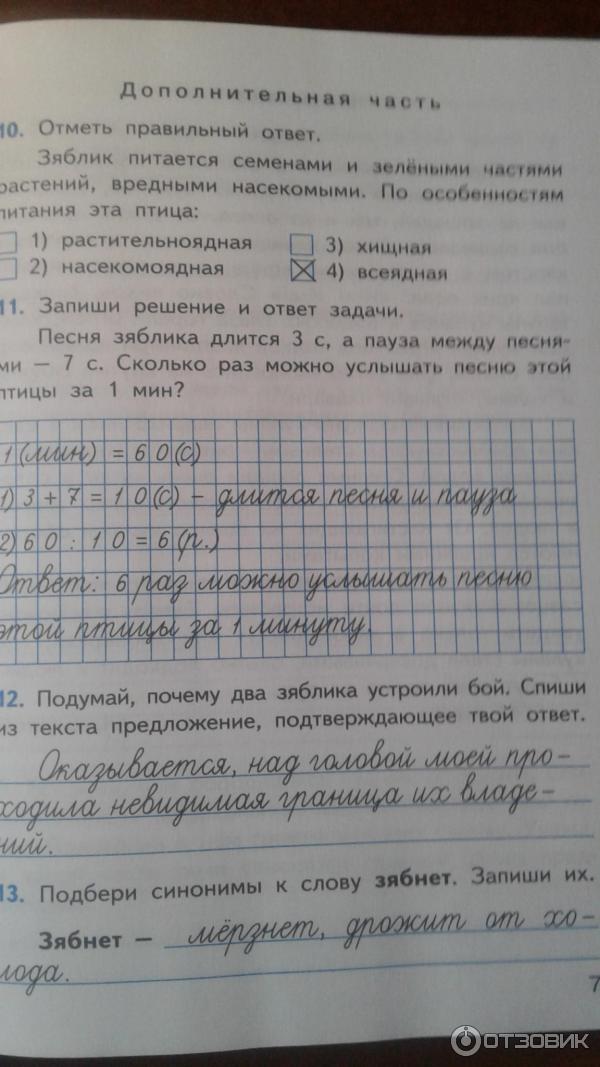 Дополнительная часть
10. Отметь правильный ответ.
Зяблик питается семенами и зелёными частями
растений, вредными насекомыми. По особенностям
питания эта птица:
1) растительноядная 3) хищная
2) насекомоядная 4) всеядная
11. Запиши решение и ответ задачи.
Песня зяблика длится 3 с, а пауза между песня-
ми — 7 с. Сколько раз можно услышать песню этой
птицы за 1 мин?
1 (мин) = 60 (с)
1) 3 + 7 = 10 (с) - длится песня и пауза
2) 60 : 10 = 6 (р.)
Ответ: 6 раз можно услышать песню
этой птицы за 1 минуту.
12. Подумай, почему два зяблика устроили бой. Спиши
из текста предложение, подтверждающее твой ответ.
Оказывается, над головой моей про-
ходила невидимая граница их владе-
ний.
13. Подбери синонимы к слову зябнет. Запиши их.
Зябнет — мёрзнет, дрожит от хо-
лода.
7
ОТЗОВИК